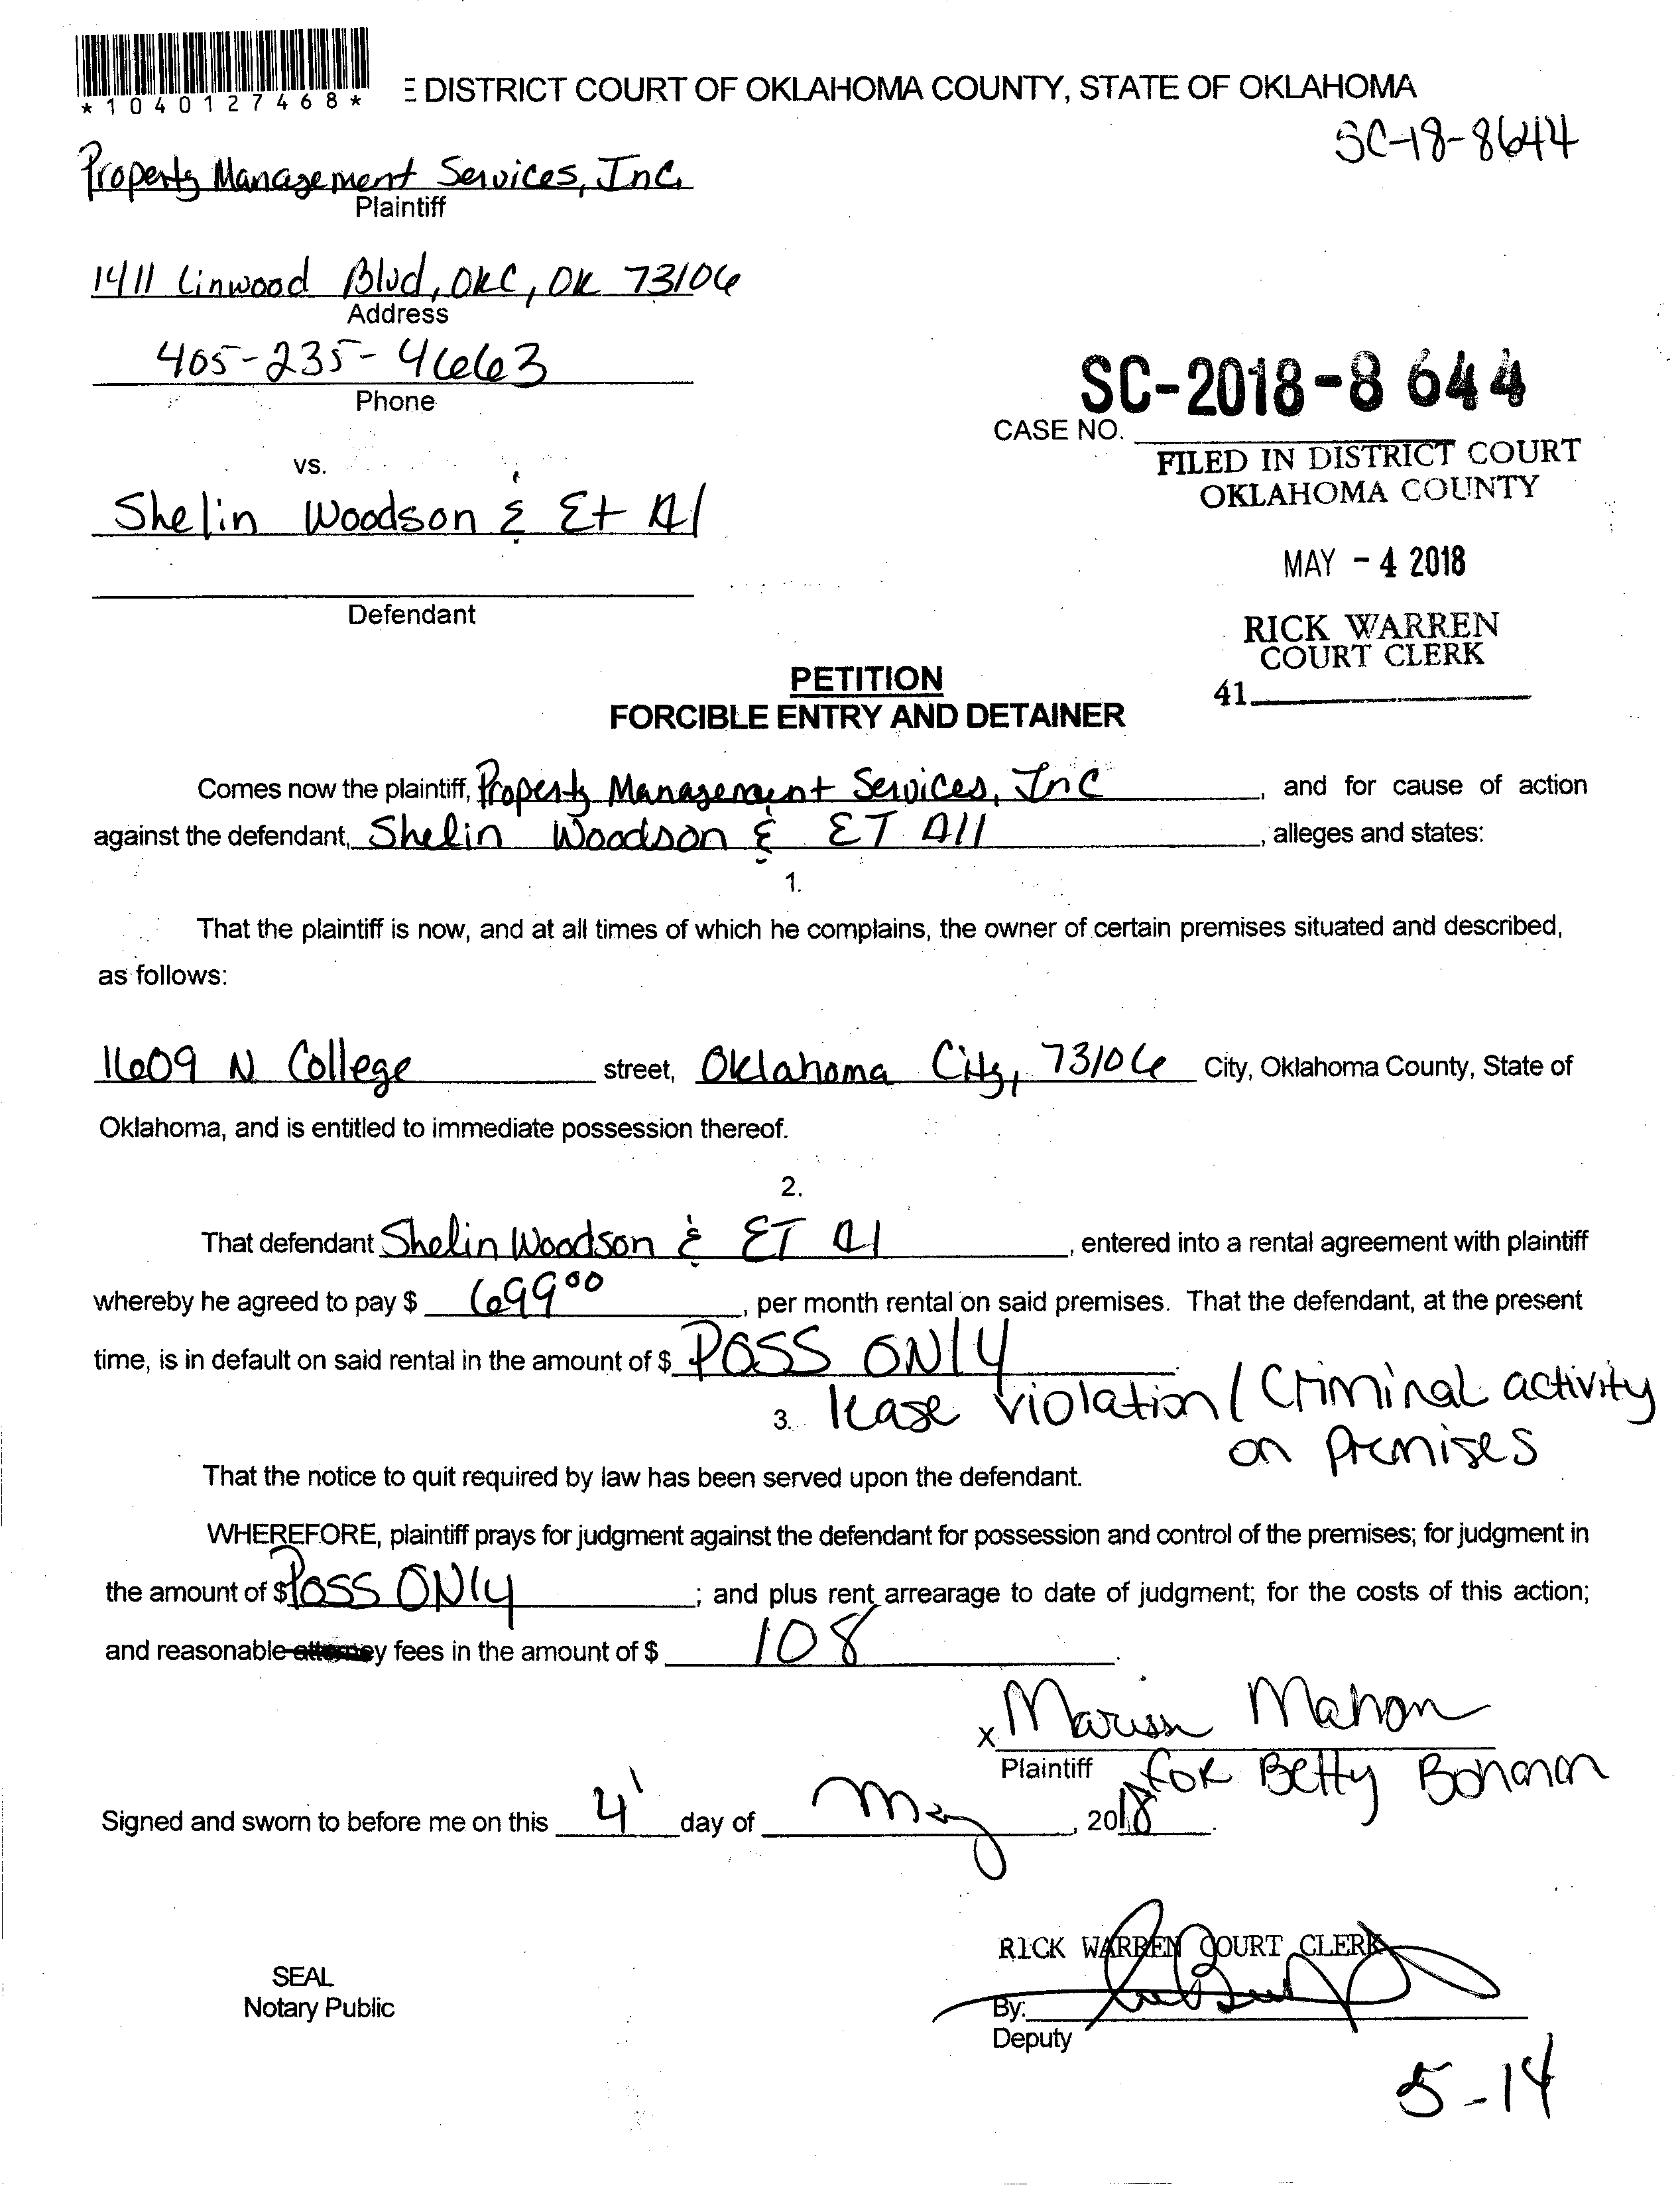 *1040127468*
E DISTRICT COURT OF OKLAHOMA COUNTY, STATE OF OKLAHOMA
SC-18-8644
Property Management Services, Inc.
Plaintiff
1411 Linwood Blvd, OKC, OK 73106
Address
405-235-4663
Phone
SC-2018-8644
CASE NO.
vs.
FILED IN DISTRICT COURT
OKLAHOMA COUNTY
Shelin Woodson & Et Al
MAY - 4 2018
Defendant
RICK WARREN
COURT CLERK
41
PETITION
FORCIBLE ENTRY AND DETAINER
Comes now the plaintiff, Property Management Services, Inc, and for cause of action
against the defendant, Shelin Woodson & ET All, alleges and states:
1.
That the plaintiff is now, and at all times of which he complains, the owner of certain premises situated and described,
as follows:
1609 N College street, Oklahoma City, 73106 City, Oklahoma County, State of
Oklahoma, and is entitled to immediate possession thereof.
2.
That defendant Shelin Woodson & ET Al, entered into a rental agreement with plaintiff
whereby he agreed to pay $ 699 00, per month rental on said premises. That the defendant, at the present
time, is in default on said rental in the amount of $ POSS ONLY.
3. lease violation / Criminal activity
on premises
That the notice to quit required by law has been served upon the defendant.
WHEREFORE, plaintiff prays for judgment against the defendant for possession and control of the premises; for judgment in
the amount of $ POSS ONLY; and plus rent arrearage to date of judgment; for the costs of this action;
and reasonable attorney fees in the amount of $ 108.
x Marissa Mahon
Plaintiff for Betty Bohanan
Signed and sworn to before me on this 4 day of May, 2018.
RICK WARREN COURT CLERK
SEAL
Notary Public
By:
Deputy
5-14